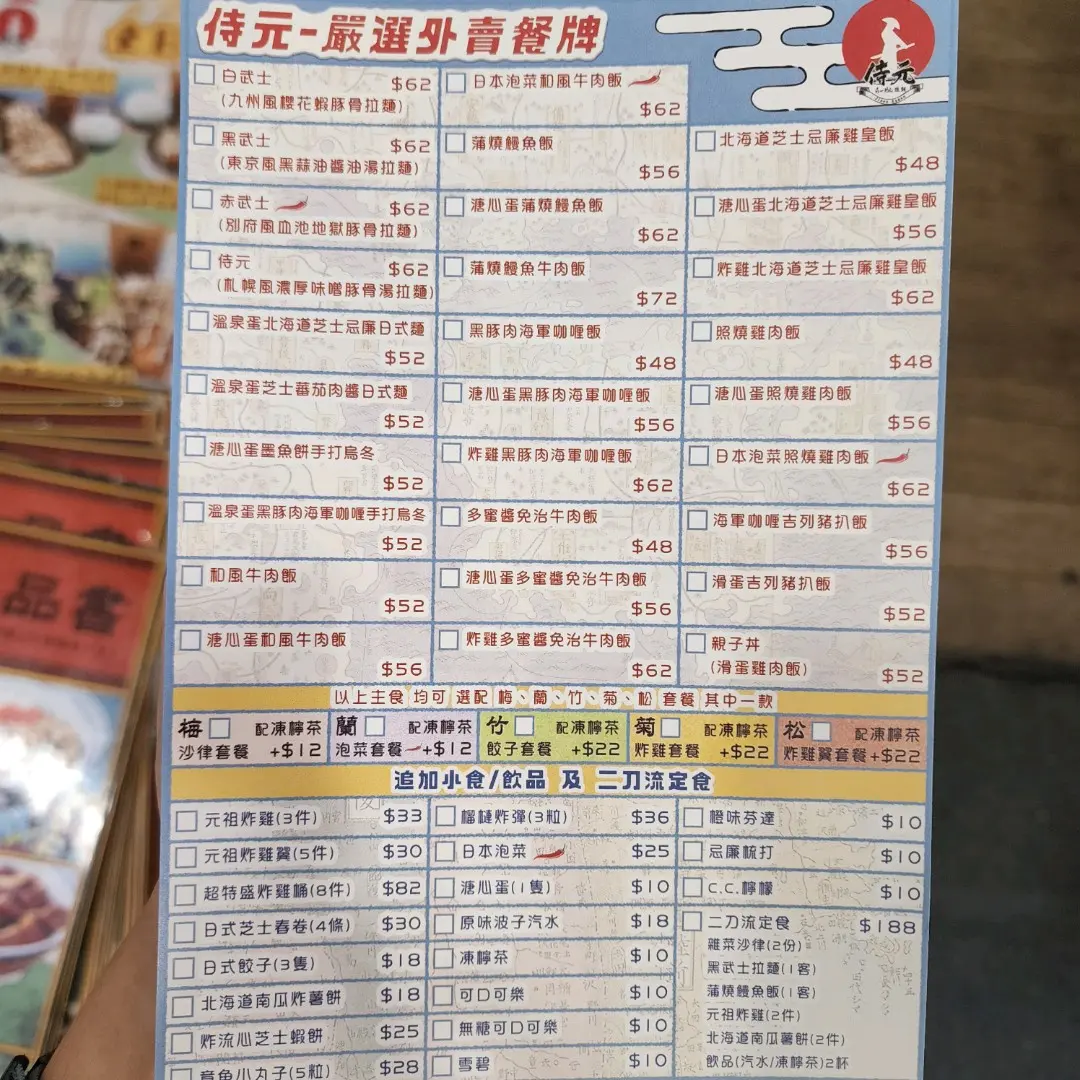 侍元-嚴選外賣餐牌
侍元
白武士 $62
(九州風櫻花蝦豚骨拉麵)
黑武士 $62
(東京風黑蒜油醬油湯拉麵)
赤武士 $62
(別府風血池地獄豚骨拉麵)
侍元 $62
(札幌風濃厚味噌豚骨湯拉麵)
溫泉蛋北海道芝士忌廉日式麵
$52
溫泉蛋芝士蕃茄肉醬日式麵
$52
溏心蛋墨魚餅手打烏冬
$52
溫泉蛋黑豚肉海軍咖喱手打烏冬
$52
和風牛肉飯
$52
溏心蛋和風牛肉飯
$56
日本泡菜和風牛肉飯
$62
蒲燒鰻魚飯
$56
溏心蛋蒲燒鰻魚飯
$62
蒲燒鰻魚牛肉飯
$72
黑豚肉海軍咖喱飯
$48
溏心蛋黑豚肉海軍咖喱飯
$56
炸雞黑豚肉海軍咖喱飯
$62
多蜜醬免治牛肉飯
$48
溏心蛋多蜜醬免治牛肉飯
$56
炸雞多蜜醬免治牛肉飯
$62
北海道芝士忌廉雞皇飯
$48
溏心蛋北海道芝士忌廉雞皇飯
$56
炸雞北海道芝士忌廉雞皇飯
$62
照燒雞肉飯
$48
溏心蛋照燒雞肉飯
$56
日本泡菜照燒雞肉飯
$62
海軍咖喱吉列豬扒飯
$56
滑蛋吉列豬扒飯
$52
親子丼
(滑蛋雞肉飯) $52
以上主食 均可 選配 梅、蘭、竹、菊、松 套餐 其中一款
梅 配凍檸茶
沙律套餐 +$12
蘭 配凍檸茶
泡菜套餐 +$12
竹 配凍檸茶
餃子套餐 +$22
菊 配凍檸茶
炸雞套餐 +$22
松 配凍檸茶
炸雞翼套餐+$22
追加小食/飲品 及 二刀流定食
元祖炸雞(3件) $33
元祖炸雞翼(5件) $30
超特盛炸雞桶(8件) $82
日式芝士春卷(4條) $30
日式餃子(3隻) $18
北海道南瓜炸薯餅 $18
炸流心芝士蝦餅 $25
章魚小丸子(5粒) $28
榴槤炸彈(3粒) $36
日本泡菜 $25
溏心蛋(1隻) $10
原味波子汽水 $18
凍檸茶 $10
可口可樂 $10
無糖可口可樂 $10
雪碧 $10
橙味芬達 $10
忌廉梳打 $10
C.C.檸檬 $10
二刀流定食 $188
雜菜沙律(2份)
黑武士拉麵(1客)
蒲燒鰻魚飯(1客)
元祖炸雞(2件)
北海道南瓜薯餅(2件)
飲品(汽水/凍檸茶)2杯
品客